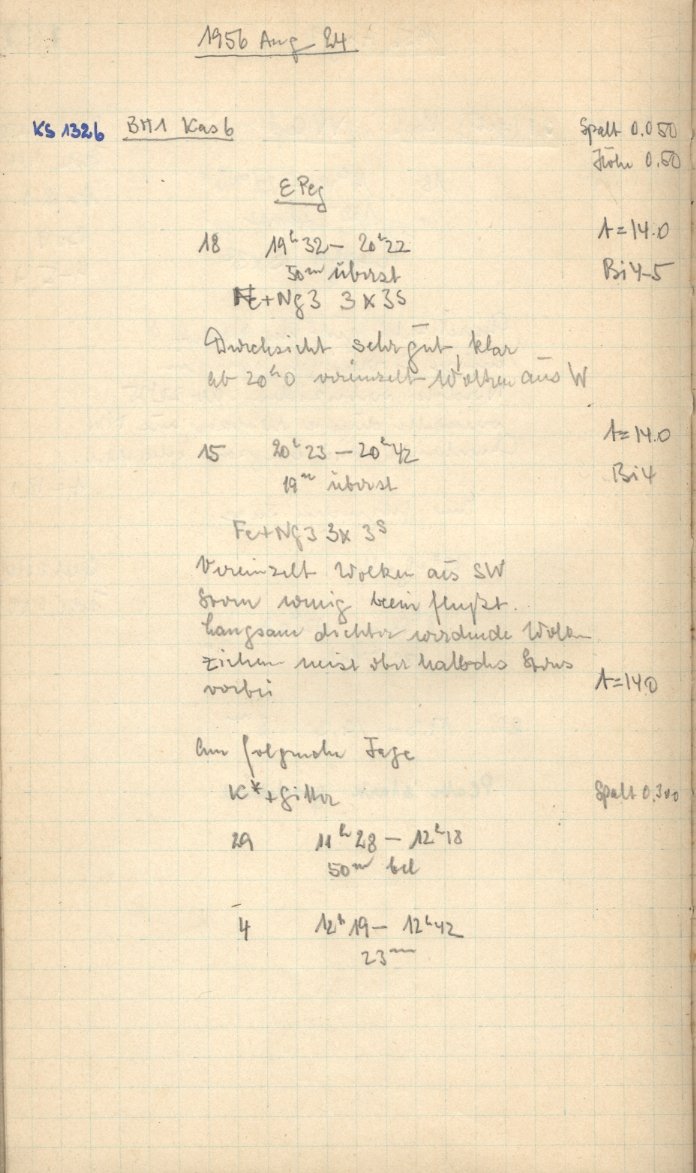 1956 Aug 24
KS 1326 BM1 Kas 6 Spalt 0.050
Höhe 0.50
ε Peg
18 19ʰ32 – 20ʰ22 A=14.0
50ᵐ überst Bi 4-5
Fe+Ng3 3×3ˢ
Durchsicht sehr gut, klar
ab 20ʰ0 vereinzelt Wolken aus W
15 20ʰ23 – 20ʰ42 A=14.0
19ᵐ überst Bi 4
Fe+Ng3 3× 3ˢ
Vereinzelt Wolken aus SW
Strom wenig beeinflußt.
Langsam dichter werdende Wolken
ziehen meist oberhalb des Sterns
vorbei A=14.0
Am folgenden Tage
K*+Gitter Spalt 0.300
29 11ʰ28 – 12ʰ18
50ᵐ bel
4 12ʰ19 – 12ʰ42
23ᵐ